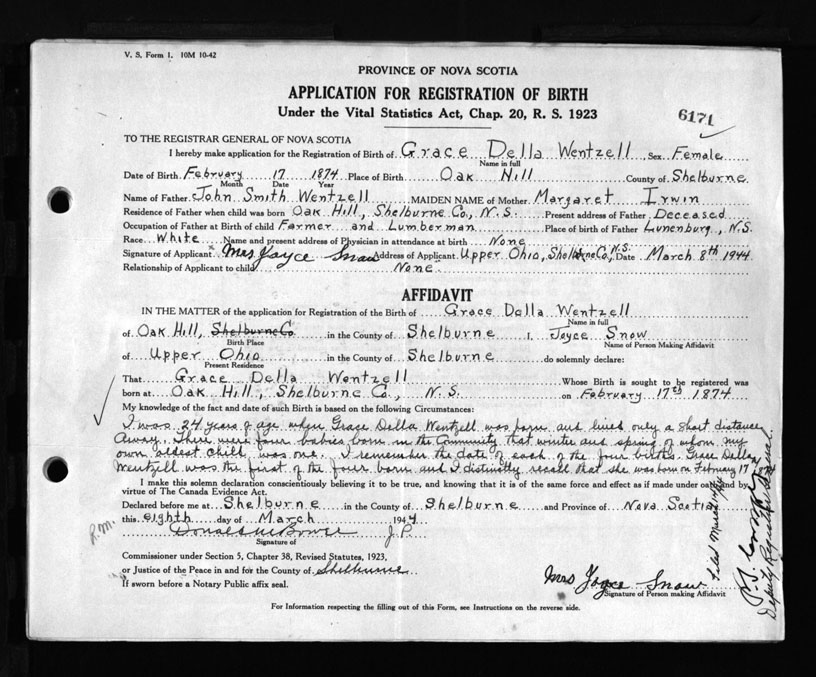 V. S. Form 1. 10M 10-42
PROVINCE OF NOVA SCOTIA
APPLICATION FOR REGISTRATION OF BIRTH
Under the Vital Statistics Act, Chap. 20, R. S. 1923
6171
TO THE REGISTRAR GENERAL OF NOVA SCOTIA
I hereby make application for the Registration of Birth of Grace Della Wentzell Sex Female
Name in full
Date of Birth February 17 1874 Place of Birth Oak Hill County of Shelburne
Month Date Year
Name of Father John Smith Wentzell MAIDEN NAME of Mother Margaret Irwin
Residence of Father when child was born Oak Hill, Shelburne Co., N.S. Present address of Father Deceased
Occupation of Father at Birth of child Farmer and Lumberman Place of birth of Father Lunenburg, N.S.
Race White Name and present address of Physician in attendance at birth None
Signature of Applicant Mrs Joyce Snow Address of Applicant Upper Ohio, Shelburne Co., N.S. Date March 8th 1944
Relationship of Applicant to child None
AFFIDAVIT
IN THE MATTER of the application for Registration of the Birth of Grace Della Wentzell
Name in full
of Oak Hill, Shelburne Co in the County of Shelburne I, Joyce Snow
Birth Place Name of Person Making Affidavit
of Upper Ohio in the County of Shelburne do solemnly declare:
Present Residence
That Grace Della Wentzell Whose Birth is sought to be registered was
born at Oak Hill, Shelburne Co., N.S. on February 17th 1874
My knowledge of the fact and date of such Birth is based on the following Circumstances:
I was 24 years of age when Grace Della Wentzell was born and lived only a short distance
away. There were four babies born in the Community that winter and spring of whom my
own oldest child was one. I remember the date of each of the four births. Grace Della
Wentzell was the first of the four born and I distinctly recall that she was born on February 17
I make this solemn declaration conscientiously believing it to be true, and knowing that it is of the same force and effect as if made under oath and by
virtue of The Canada Evidence Act.
Declared before me at Shelburne in the County of Shelburne and Province of Nova Scotia
this eighth day of March 1944
R.M.
J.P.
Signature of
Commissioner under Section 5, Chapter 38, Revised Statutes, 1923,
or Justice of the Peace in and for the County of Shelburne
If sworn before a Notary Public affix seal.
Mrs Joyce Snow
Signature of Person making Affidavit
For Information respecting the filling out of this Form, see Instructions on the reverse side.
Deputy Registrar General